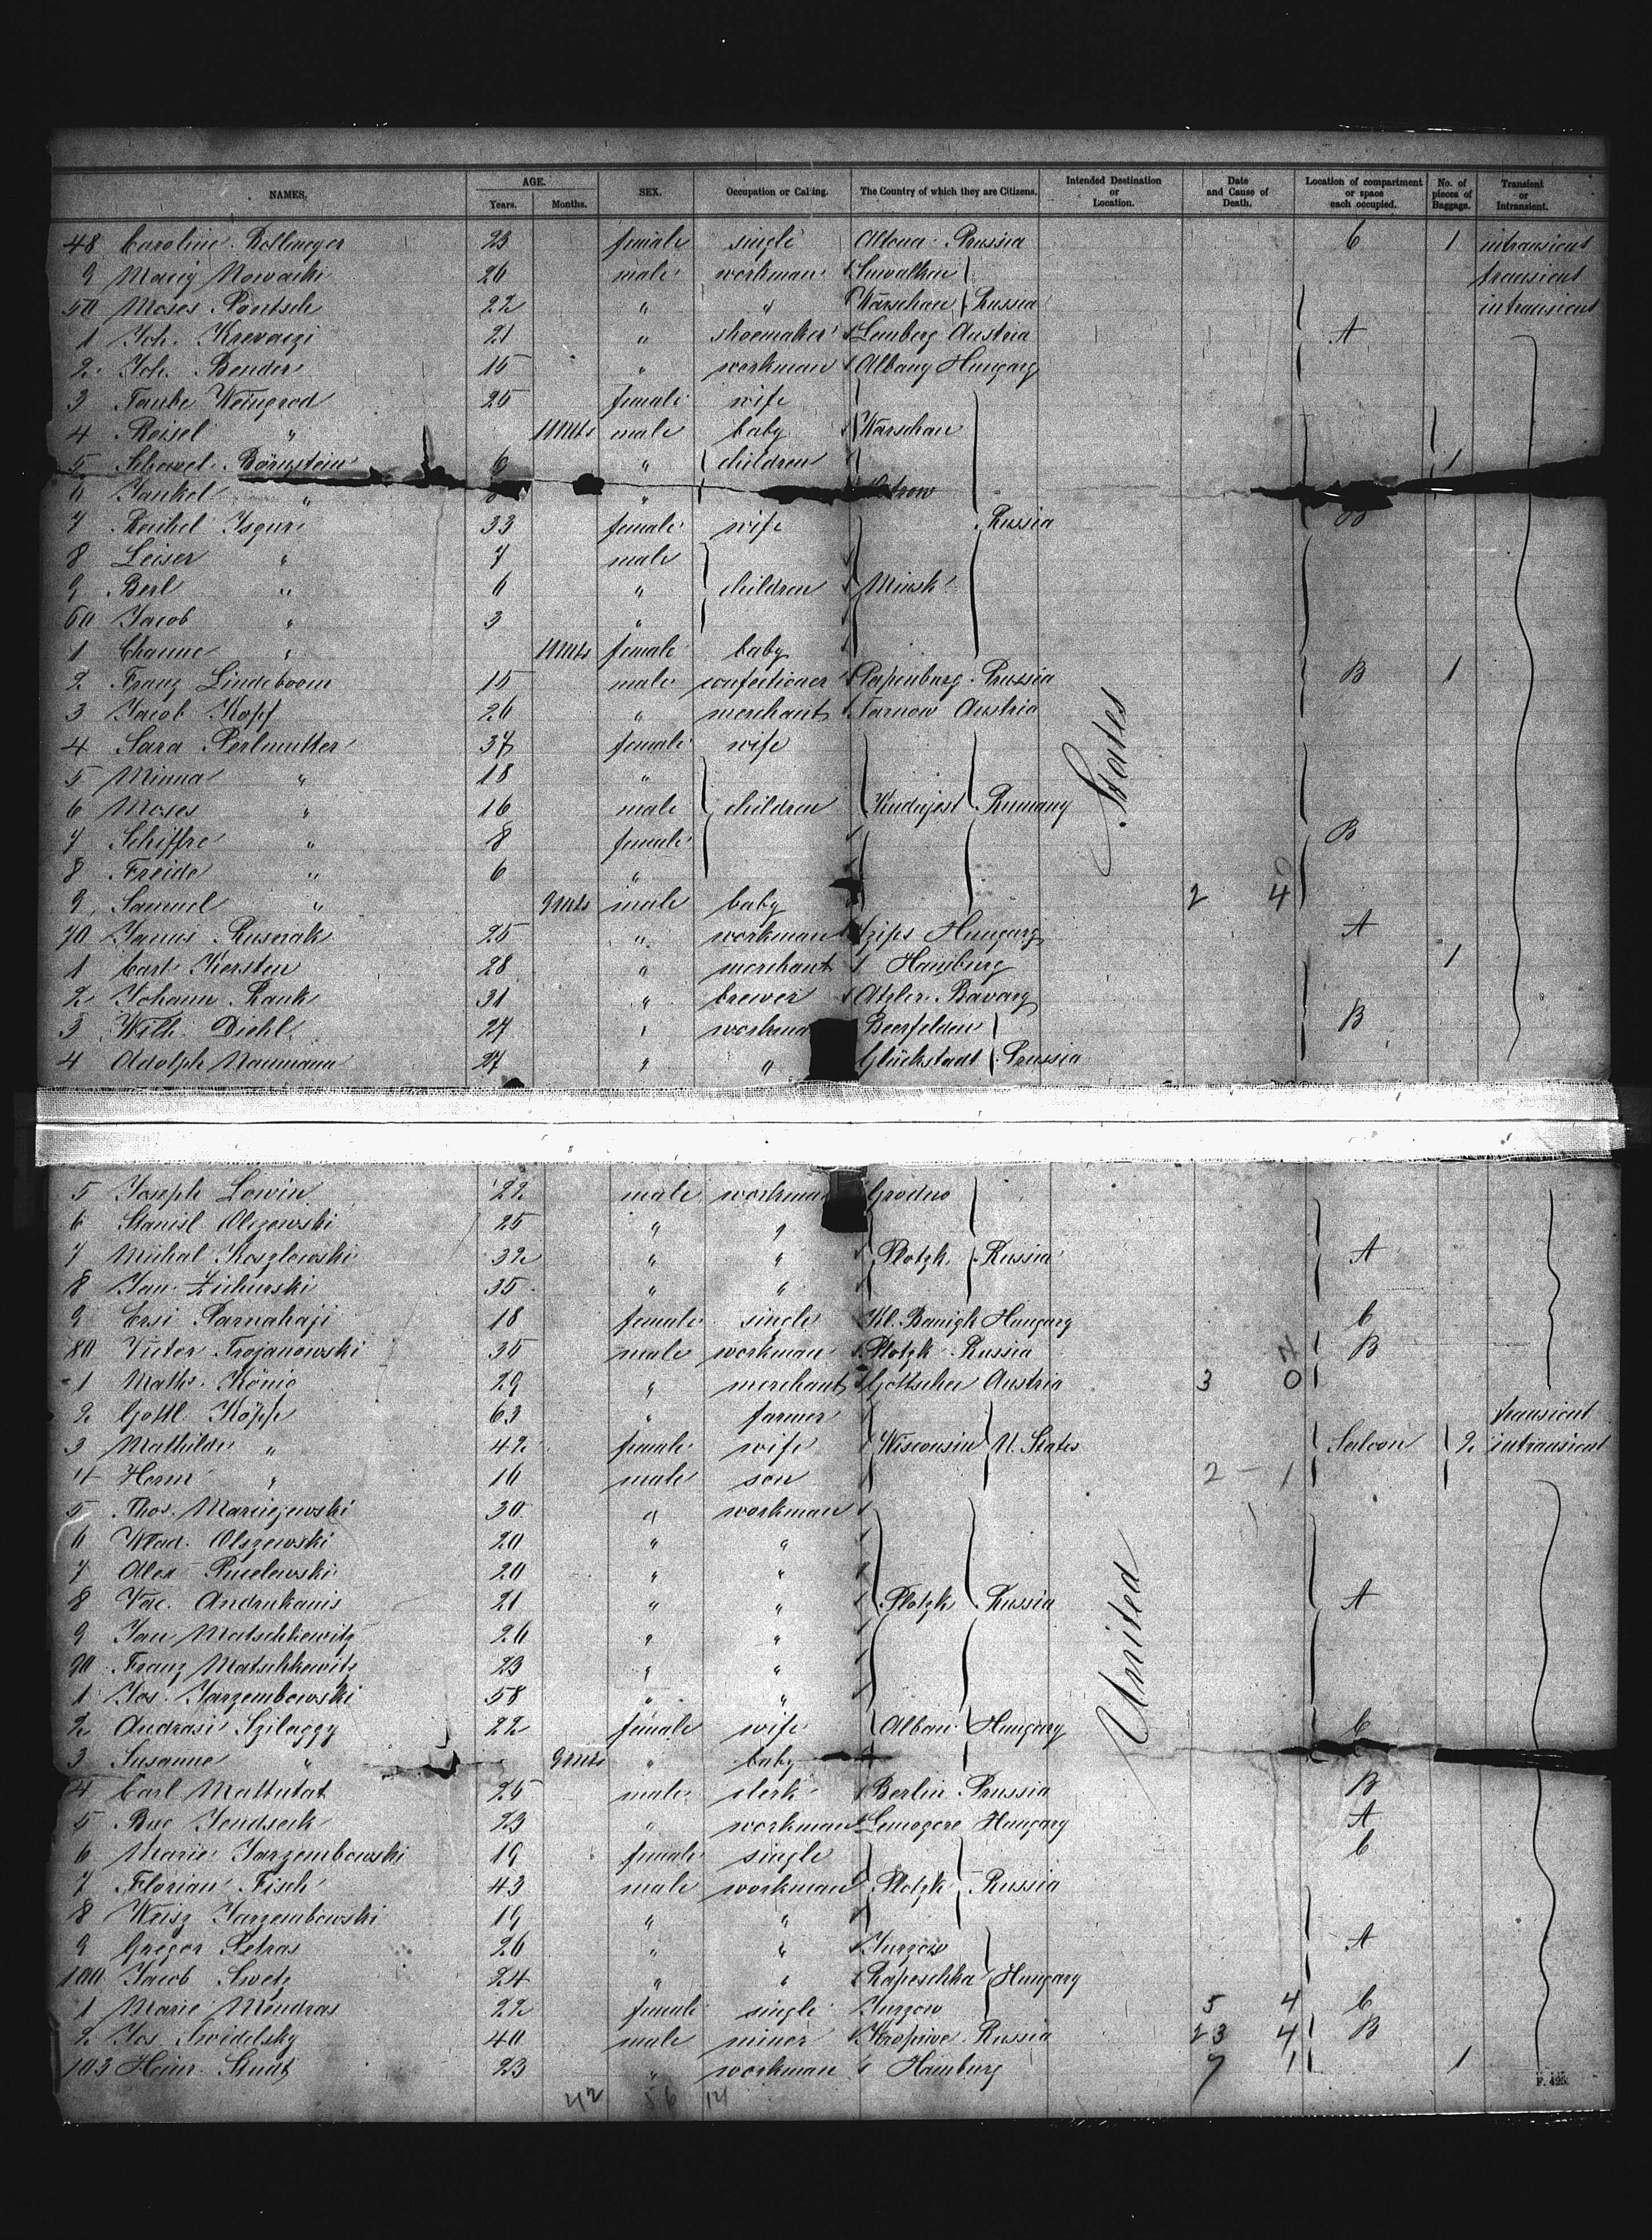 NAMES. AGE. Years. Months. SEX. Occupation or Calling. The Country of which they are Citizens. Intended Destination or Location. Date and Cause of Death. Location of compartment or space each occupied. No. of pieces of Baggage. Transient or Intransient.
48 Caroline Dollmeyer 23 female single Altona Prussia C 1 intransient
9 Maciej Nowacki 26 male workman Suwalken transient
50 Moses 22 " " Warschau Russia intransient
1 Joh. 21 " shoemaker Lemberg Austria A
2 Joh. Bender 15 " workman Albany Hungary
3 Taube Weingrod 25 female wife
4 Reisel " 11 Mts male baby Warschau
5 Schewel Börnstein 6 " children 1
6 Jankel " "
7 Reichel Isgur 33 female wife Russia B
8 Leiser " 7 male
9 Berl " 6 " children Minsk
60 Jacob " 3 "
1 Channe " 11 Mts female baby
2 Franz Lindeboom 15 male confectioner Papenburg Prussia B 1
3 Jacob Kopf 26 " merchant Tarnow Austria
4 Sara Perlmutter 37 female wife
5 Minna " 18 "
6 Moses " 16 male children Rumany
7 Schiffre " 8 female B
8 Freide " 6 "
9 Samuel " 9 Mts male baby 2 4
70 Janus Rusnak 25 " workman Zips Hungary A
1 Carl Kersten 28 " merchant Hamburg 1
2 Johann Rank 31 " brewer Bavary
3 Wilh. Diehl 27 " workman Beerfelden B
4 Adolph Naumann 27 " " Glückstadt Prussia
States
5 Joseph Lowin 22 male workman Grodno
6 Stanisl Olszewski 25 " "
7 Michal Koszlowski 32 " " Plotzk Russia A
8 Jan 35 " "
9 Ersi Parnahaji 18 female single Hungary C
80 Victor Trojanowski 35 male workman Plotzk Russia B
1 Math. König 29 " merchant Gottschee Austria 3 0
2 Gottl. Köpp 63 " farmer transient
3 Mathilde " 42 female wife Wisconsin U. States Saloon 2 intransient
4 Herm " 16 male son 2 - 1
5 Thos. Marciejewski 30 " workman
6 Wlad. Olszewski 20 " "
7 Alex 20 " "
8 Vac. Andrukanis 21 " " Plotzk Russia A
9 Jan Matschkewitz 26 " "
90 Franz Matschkewitz 23 " "
1 Jos. Jarzembowski 58 " "
2 Andrasi Szilaggy 22 female wife Alban Hungary C
3 Susanne " 9 Mts " baby
United
4 Carl Mattutat 25 male clerk Berlin Prussia B
5 23 " workman Hungary A
6 Marie Jarzembowski 19 female single C
7 Florian Fisch 43 male workman Plotzk Russia
8 Jarzembowski 19 " "
9 Gregor Petras 26 " " A
100 Jacob 24 " " Hungary
1 Marie Mondras 22 female single 5 4 C
2 Jos. Swidelsky 40 male miner Russia 23 4 B
103 Heinr. Studt 23 " workman Hamburg 7 1 1
42 56 14
F. 425.